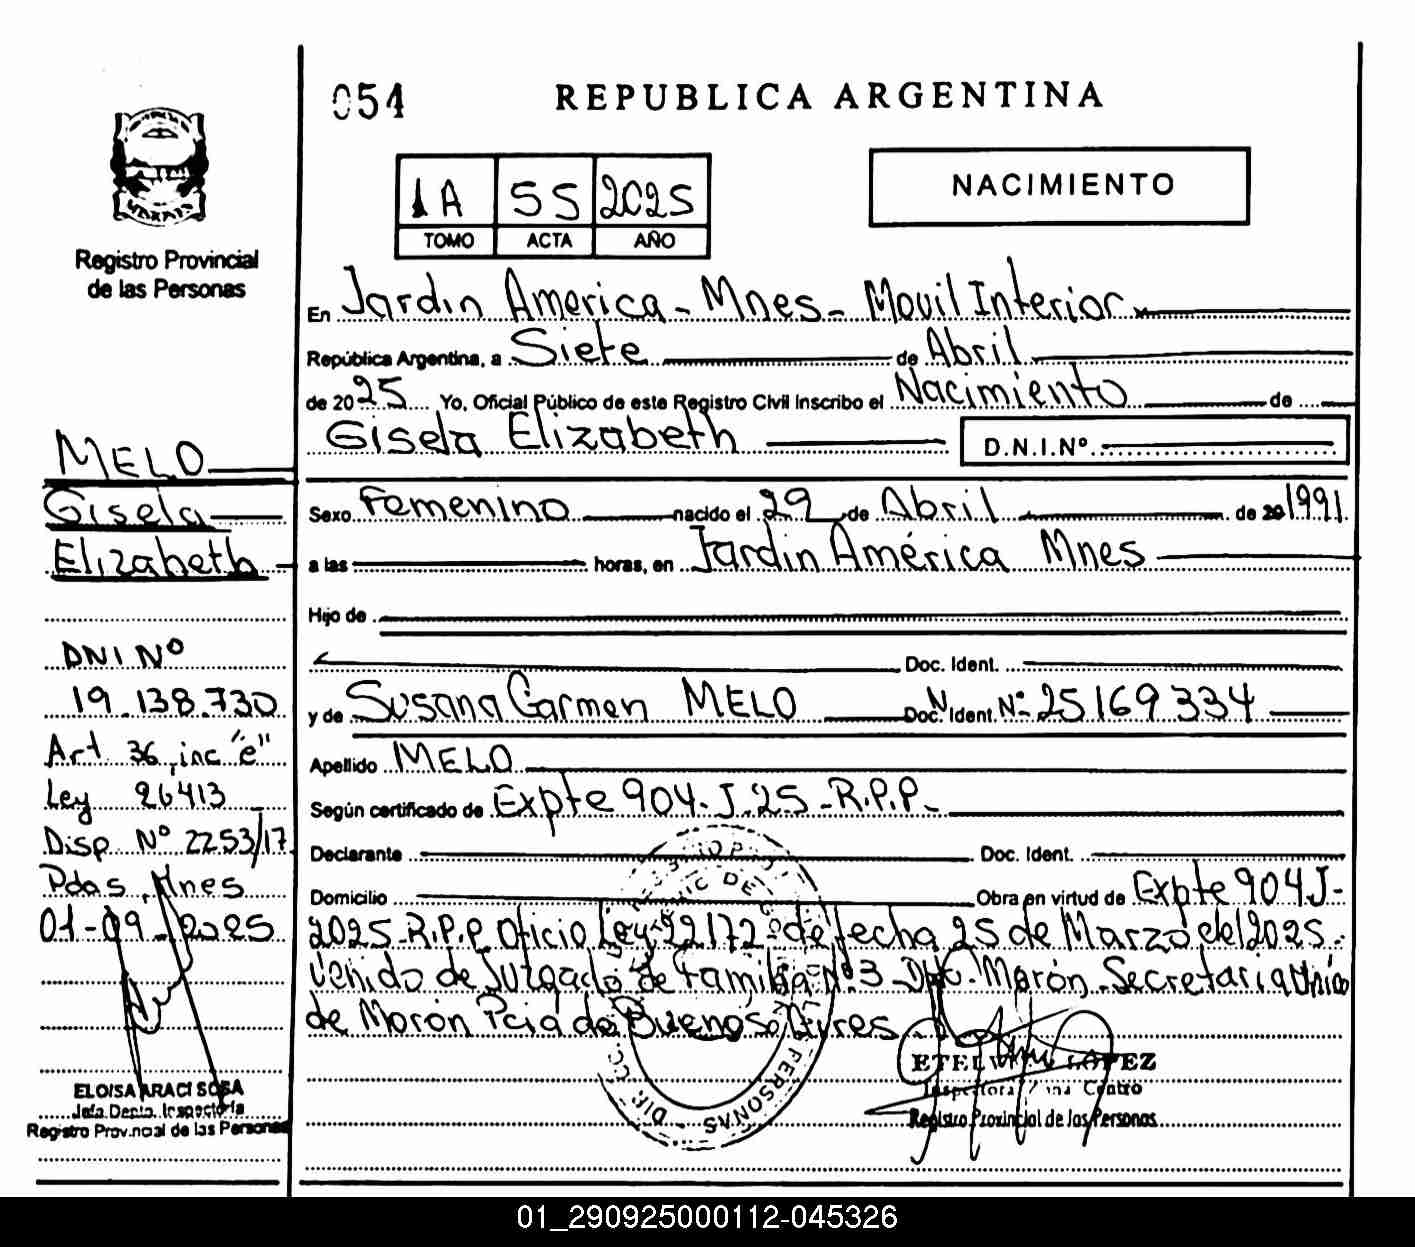 054
REPUBLICA ARGENTINA
1A 55 2025
TOMO ACTA AÑO
NACIMIENTO
Registro Provincial
de las Personas
En Jardin America - Mnes - Movil Interior
República Argentina, a Siete de Abril
de 2025 Yo, Oficial Público de este Registro Civil Inscribo el Nacimiento de
Gisela Elizabeth D.N.I.Nº
Sexo Femenino nacido el 29 de Abril de 20 1991
a las horas, en Jardin América Mnes
Hijo de
Doc. Ident.
y de Susana Carmen MELO Doc. Ident. Nº 25169334
Apellido MELO
Según certificado de Expte 904-J-25-R.P.P-
Declarante Doc. Ident.
Domicilio Obra en virtud de Expte 904J-
2025-R.P.P. Oficio Ley 22172 de fecha 25 de Marzo del 2025
venido de Juzgado de Familia Nº3 Morón Secretaria
de Morón Pcia de Buenos Aires
MELO
Gisela
Elizabeth
DNI Nº
19.138.730
Art 36 inc "e"
Ley 26413
Disp Nº 2253/17
Pdas, Mnes
01-09-2025
ELOISA ARACI SOSA
Jefa Depto. Inspectoría
Registro Provincial de las Personas
DE
PERSONAS
LOPEZ
Inspectora Zona Centro
Registro Provincial de las Personas
01_290925000112-045326